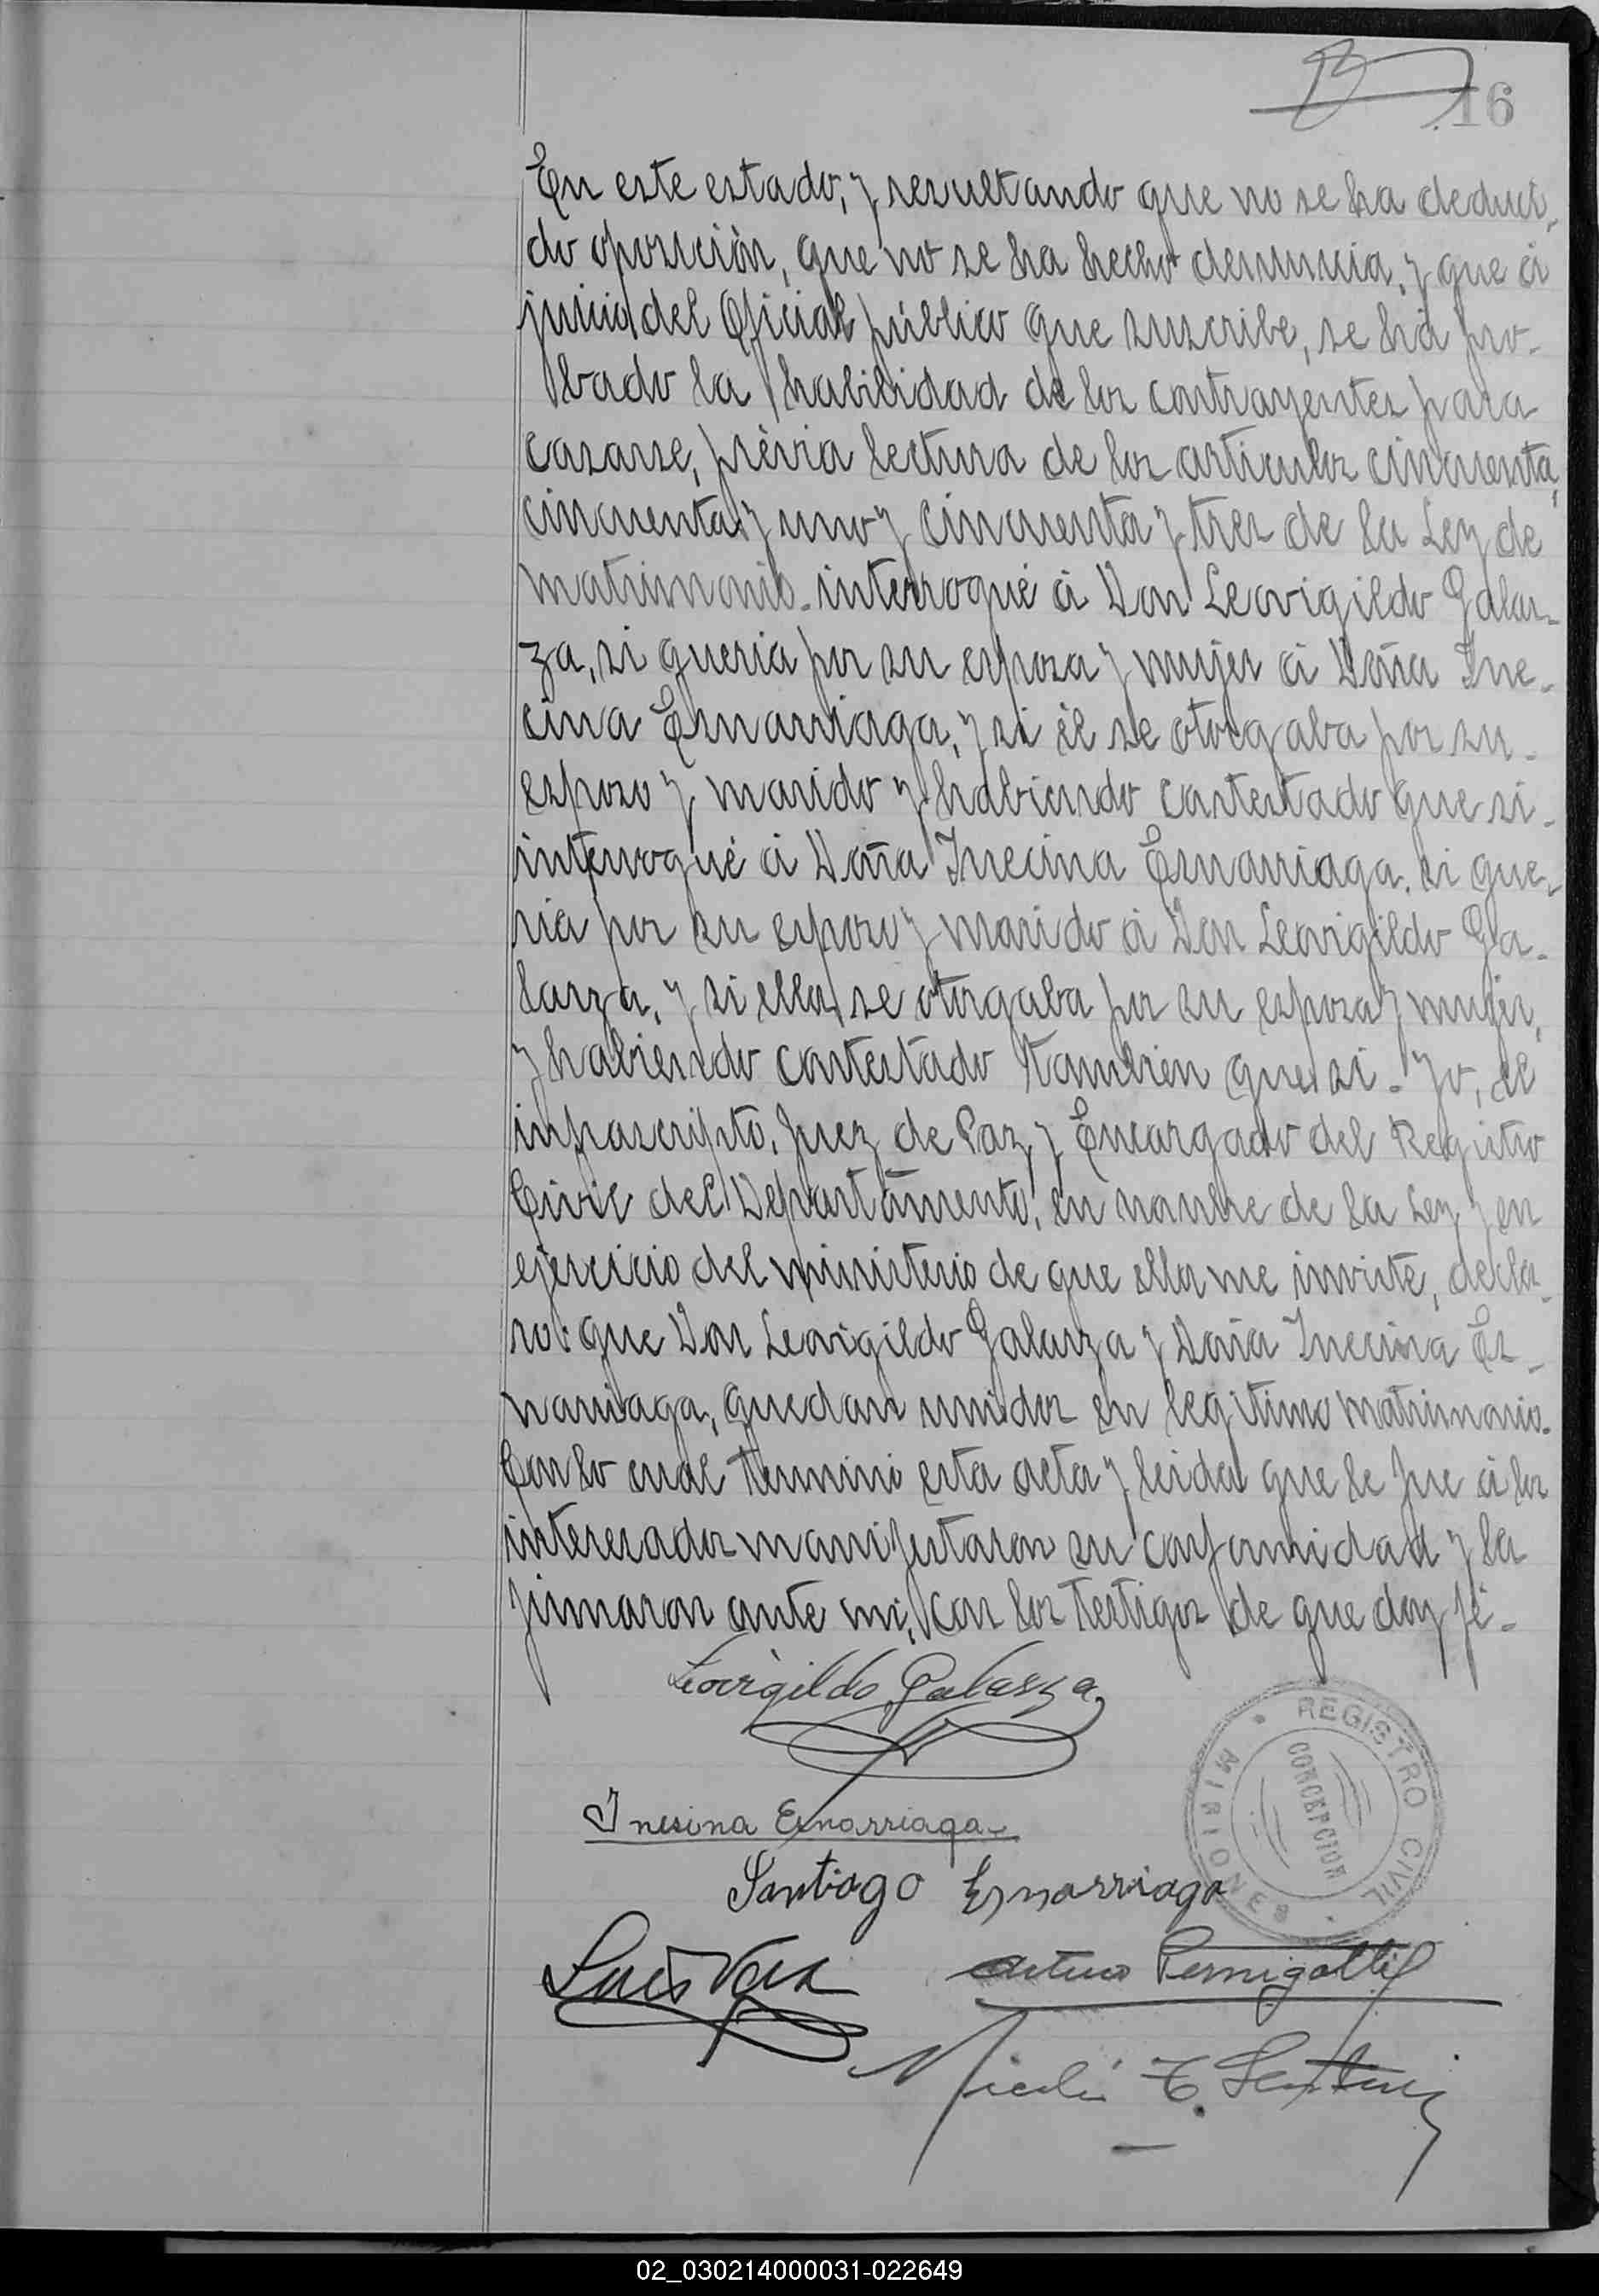 16
En este estado, y resultando que no se ha deduci-
do oposición, que no se ha hecho denuncia, y que á
juicio del Oficial público que suscribe, se ha pro-
bado la habilidad de los contrayentes para
casarse, prévia lectura de los articulos cincuenta,
cincuenta y uno y cincuenta y tres de la Ley de
matrimonio. interrogué á Don Leovigildo Galar-
za, si queria por su esposa y mujer á Doña Ine-
cina Esnarriaga, y si él se otorgaba por su
esposo y marido y habiendo contestado que si.
interrogué á Doña Inecina Esnarriaga. si que-
ria por su esposo y marido á Don Leovigildo Ga-
larza, y si ella se otorgaba por su esposa y mujer,
y habiendo contestado tambien que si. Yo, el
infrascripto, Juez de Paz y Encargado del Registro
Civil del Departamento, en nombre de la Ley y en
ejercicio del ministerio de que ella me inviste, decla-
ro: que Don Leovigildo Galarza y Doña Inecina Es-
narriaga, quedan unidos en legitimo matrimonio.
Con lo cual terminé esta acta y leida que le fue á los
interesados manifestaron su conformidad y la
firmaron ante mi, con los testigos de que doy fé.
Leovigildo Galarza
Inesina Esnarriaga
Santiago Esnarriaga
REGISTRO CIVIL
CONCEPCION
MISIONES
Luis Vera
Arturo Pernigotti
02_030214000031-022649